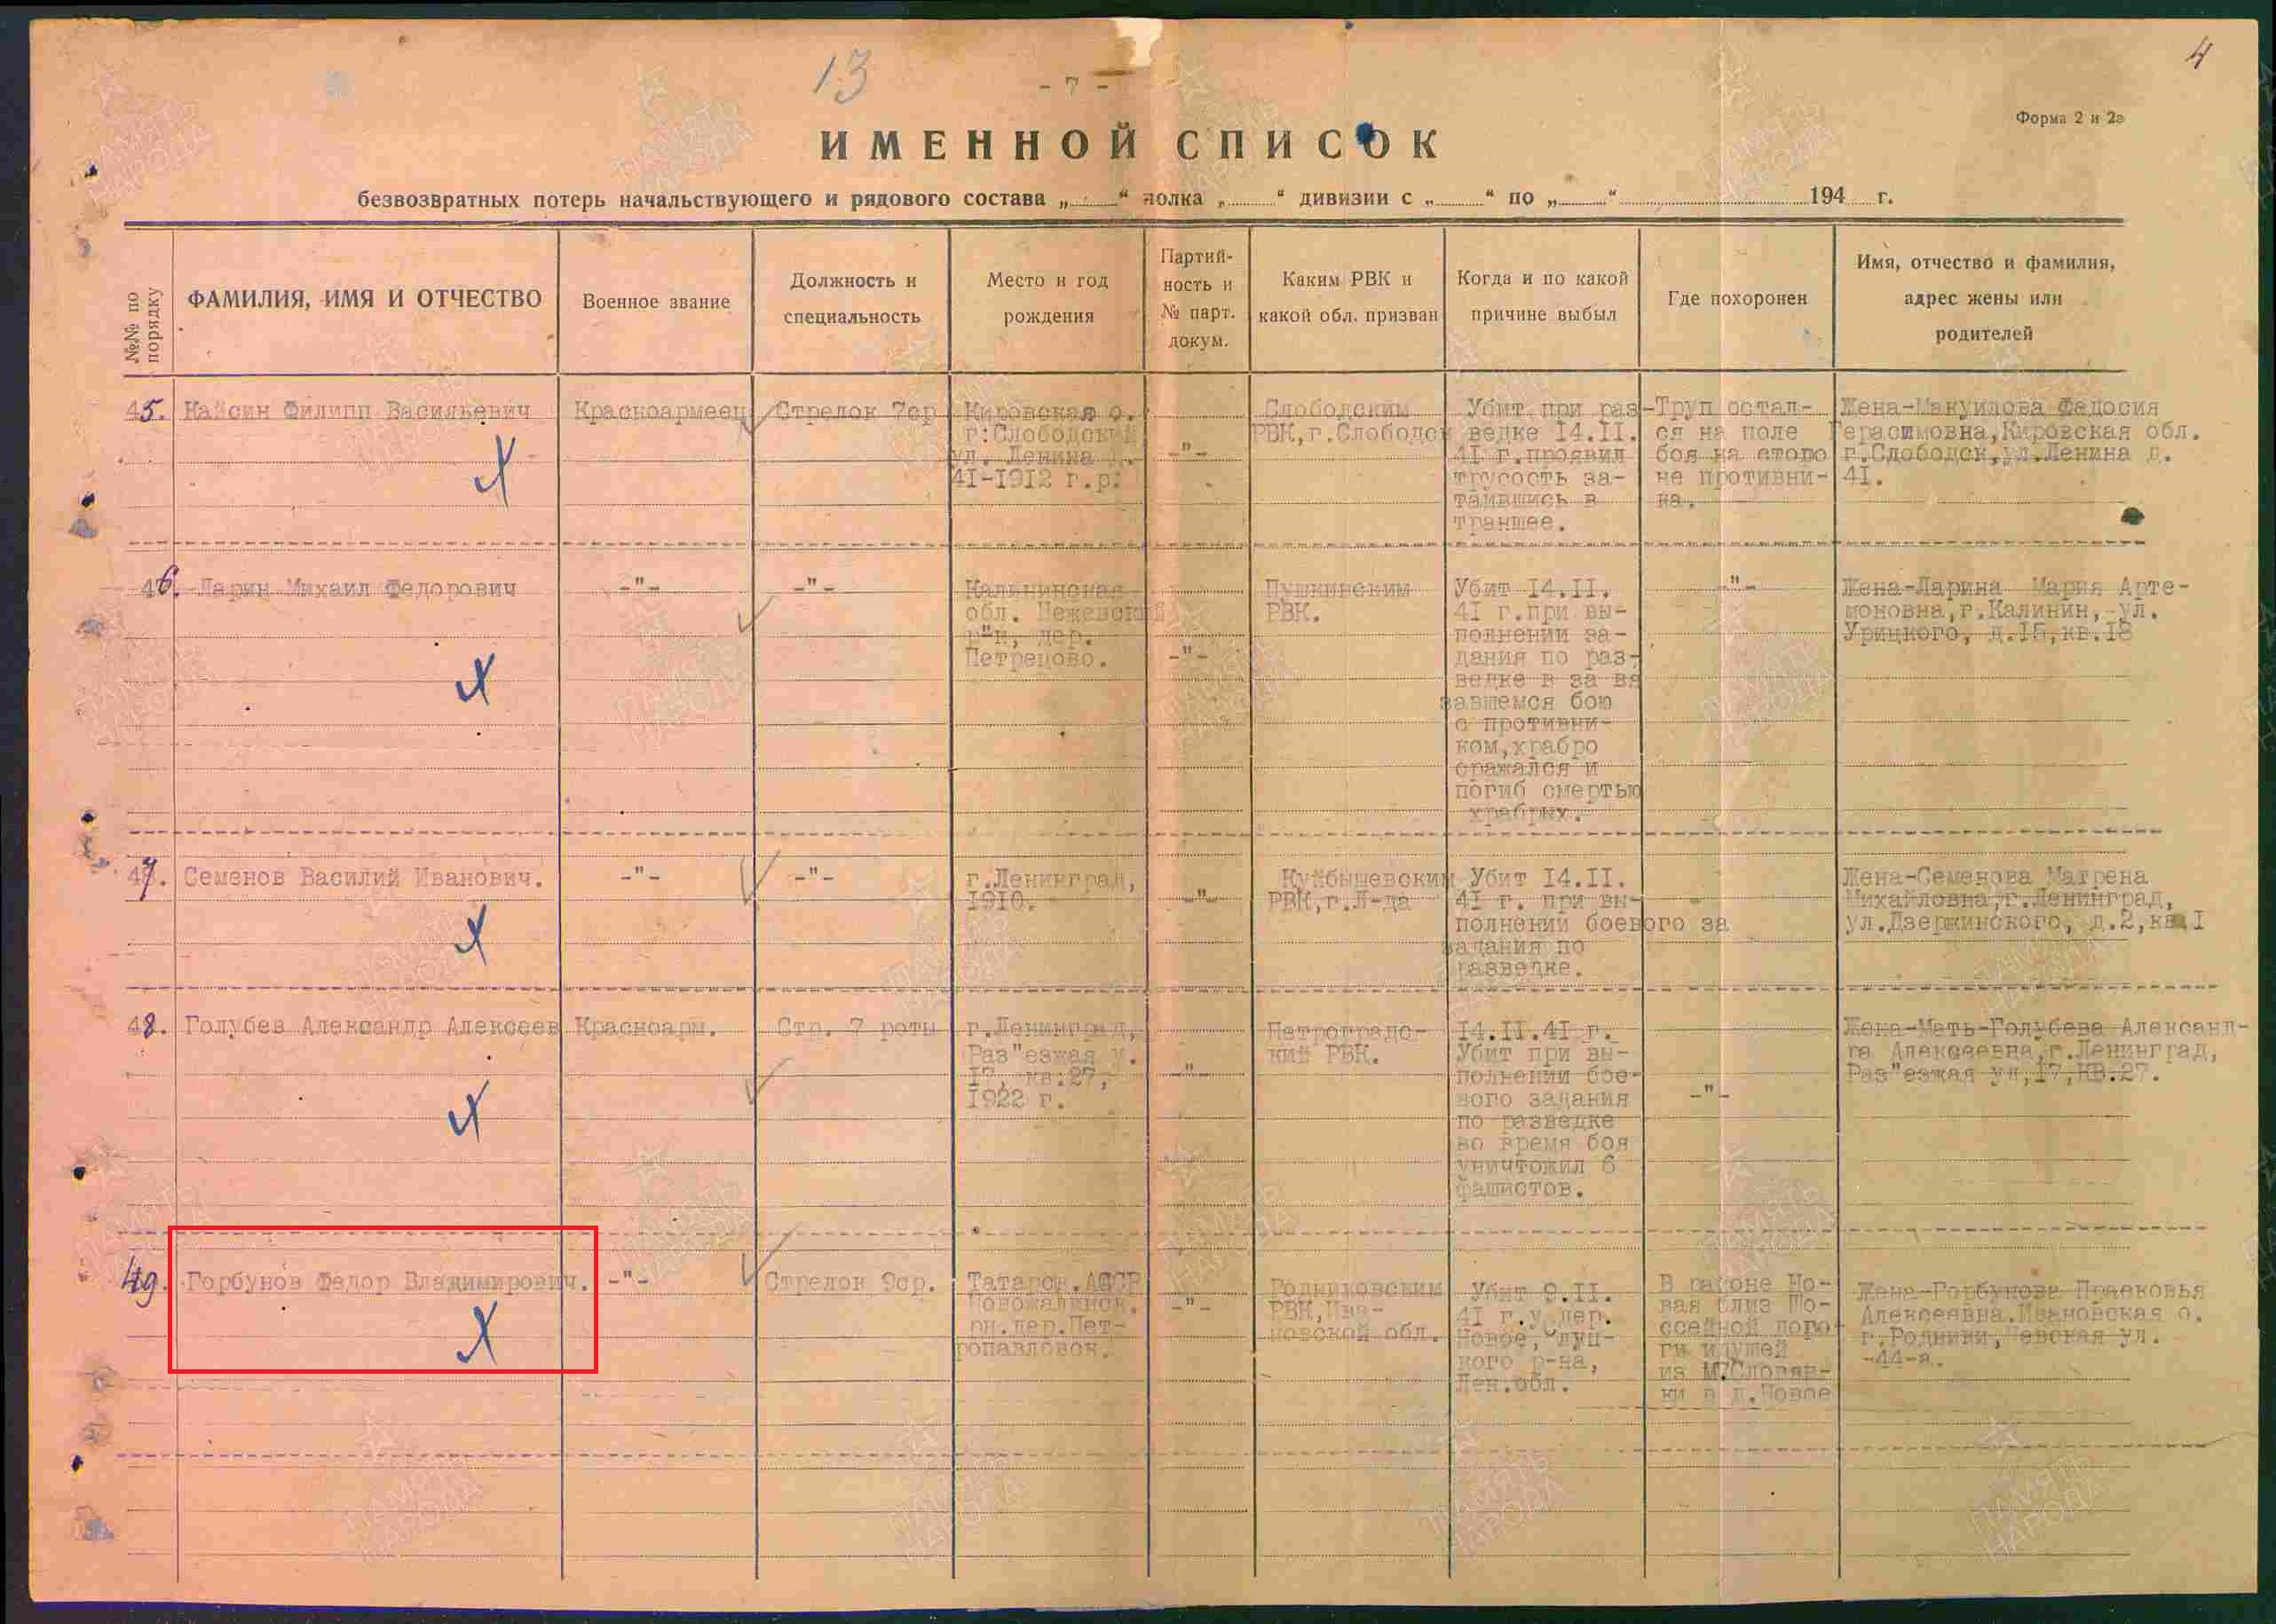 13
- 7 -
4
Форма 2 и 2а
ИМЕННОЙ СПИСОК
безвозвратных потерь начальствующего и рядового состава „ “ полка „ “ дивизии с „ “ по „ “ 194 г.
№№ по порядку
ФАМИЛИЯ, ИМЯ И ОТЧЕСТВО
Военное звание
Должность и
специальность
Место и год
рождения
Партий-
ность и
№ парт.
докум.
Каким РВК и
какой обл. призван
Когда и по какой
причине выбыл
Где похоронен
Имя, отчество и фамилия,
адрес жены или
родителей
45.
Кайсин Филипп Васильевич
Красноармеец
Стрелок 7ср
Кировская о.
г.Слободской
ул. Ленина д.
41-1912 г.р.
-"-
Слободским
РВК,г.Слободск
Убит при раз-
ведке 14.II.
41 г.проявил
трусость за-
таившись в
траншее.
Труп остал-
ся на поле
боя на сторо
не противни-
ка.
Жена-Макуилова Федосия
Герасимовна,Кировская обл.
г.Слободск,ул.Ленина д.
41.
46.
Ларин Михаил Федорович
-"-
-"-
Калининская
обл. Нежевский
р"н, дер.
Петрецово.
-"-
Пушкинским
РВК.
Убит 14.II.
41 г.при вы-
полнении за-
дания по раз-
ведке в за вя
завшемся бою
с противни-
ком,храбро
сражался и
погиб смертью
храбрых.
-"-
Жена-Ларина Мария Арте-
моновна,г.Калинин, ул.
Урицкого, д.15,кв.18
47.
Семенов Василий Иванович.
-"-
-"-
г.Ленинград,
1910.
-"-
Куйбышевским
РВК,г.Л-да
Убит 14.II.
41 г. при вы-
полнений боевого за
задания по
разведке.
Жена-Семенова Матрена
Михайловна,г.Ленинград,
ул.Дзержинского, д.2,кв I
48.
Голубев Александр Алексеев
Красноарм.
Стр. 7 роты
г.Ленинград,
Раз"езжая у.
17, кв.27,
1922 г.
-"-
Петроградс-
кий РВК.
14.II.41 г.
Убит при вы-
полнении бое-
вого задания
по разведке
во время боя
уничтожил 6
фашистов.
-"-
Жена-Мать-Голубева Александ-
ра Алексеевна,г.Ленинград,
Раз"езжая ул,17,кв.27.
49.
Горбунов Федор Владимирович.
-"-
Стрелок 9ср.
Татарск.АССР
рн.дер.Пет-
ропавловск.
-"-
Родниковским
РВК,Ива-
новской обл.
Убит 9.II.
41 г.у дер.
Новое, Слуц-
кого р-на,
Лен.обл.
В районе Но-
вая близ Шо-
ссейной доро
ги идущей
из М.Словян-
ки в д.Новое
Жена-Горбунова Праековья
Алексеявна.Ивановская о.
г.Родники, ул.
-44-а.